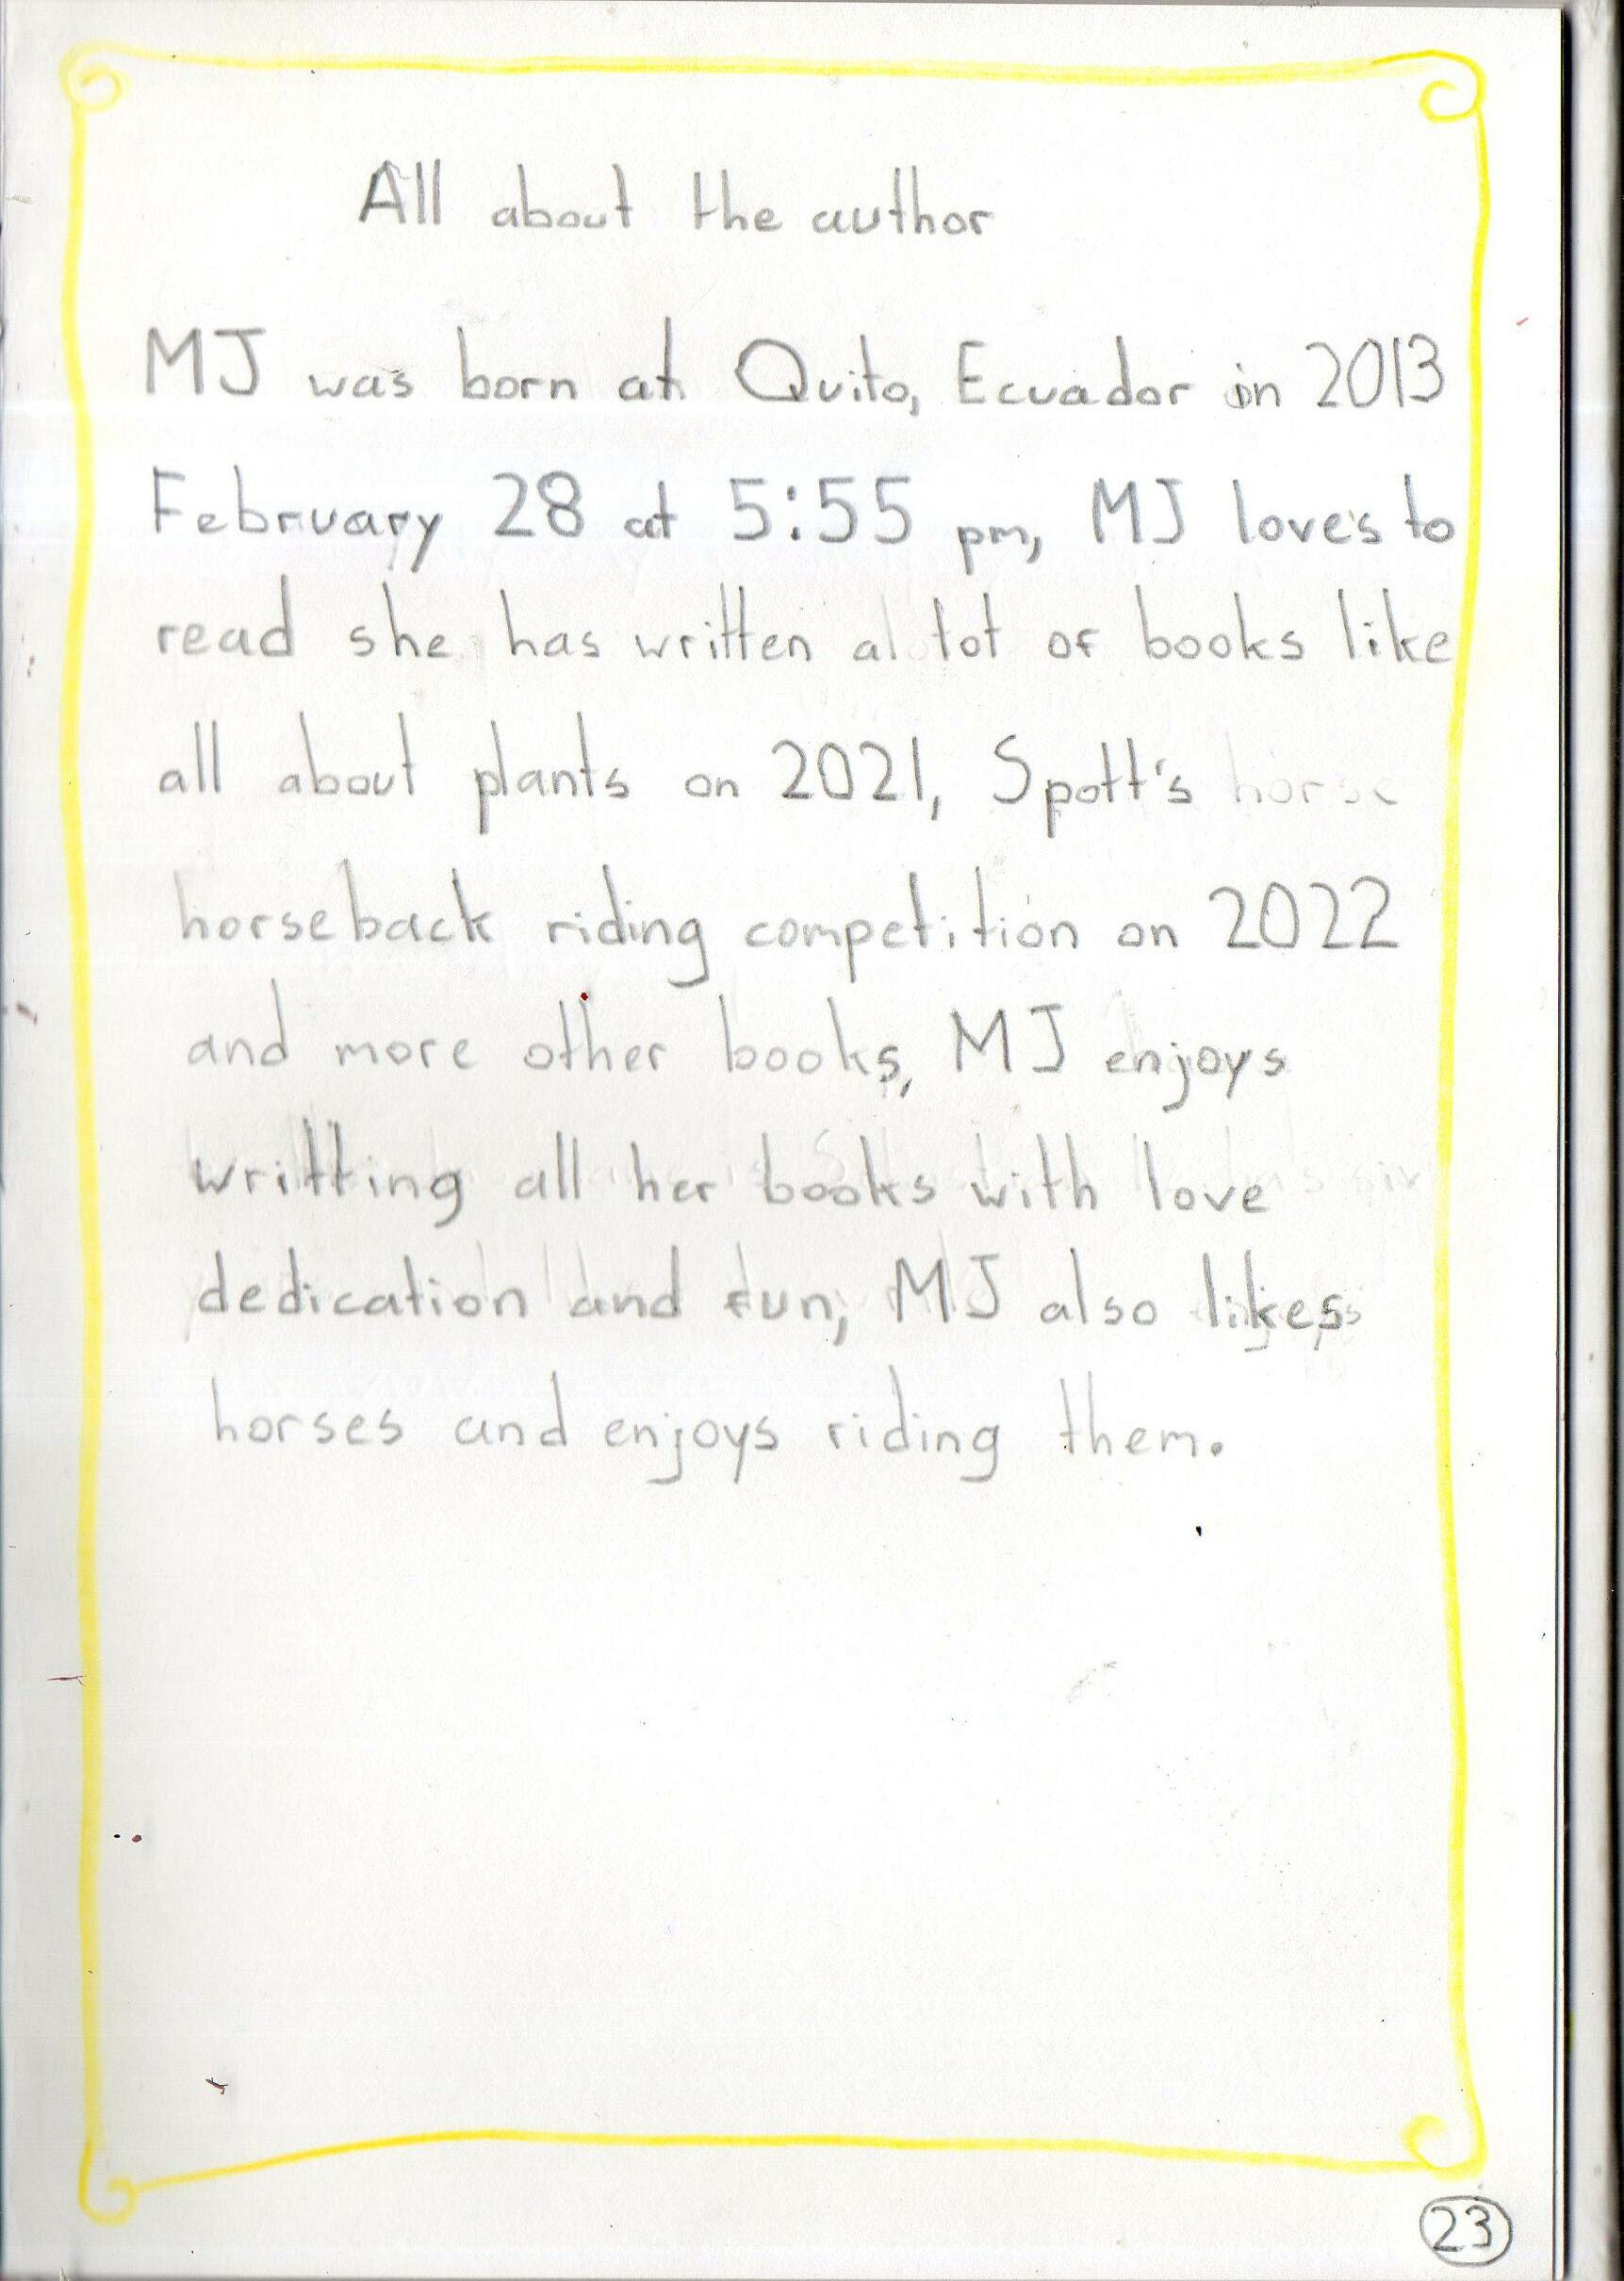 All about the author
MJ was born at Quito, Ecuador in 2013
February 28 at 5:55 pm, MJ loves to
read she has written a lot of books like
all about plants on 2021, Spott's
horseback riding competition on 2022
and more other books, MJ enjoys
writting all her books with love
dedication and fun, MJ also likes
horses and enjoys riding them.
23